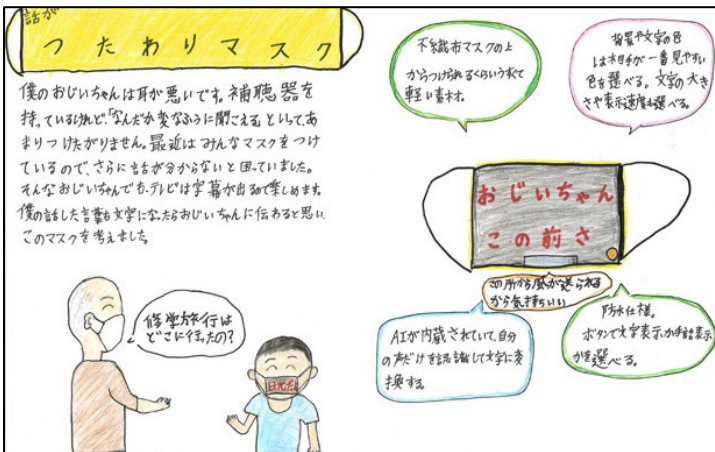 話が
つたわりマスク
僕のおじいちゃんは耳が悪いです。補聴器を
持っているけれど、「なんだか変なふうに聞こえる」といって、あ
まりつけたがりません。最近はみんなマスクをつけ
ているので、さらに話が分からないと困っていました。
そんなおじいちゃんでも、テレビは字幕が出るので楽しめます。
僕の話した言葉も文字になったらおじいちゃんに伝わると思い、
このマスクを考えました。
修学旅行は
どこに行ったの?
日光だよ
不織布マスクの上
からつけられるくらいうすくて
軽い素材。
背景や文字の色
は相手が一番見やすい
色を選べる。文字の大き
さや表示速度も選べる。
おじいちゃん
この前さ
この所から風が送られる
から気持ちいい
AIが内蔵されていて、自分
の声だけを認識して文字に変
換する。
防水仕様。
ボタンで文字表示か手話表示
かを選べる。